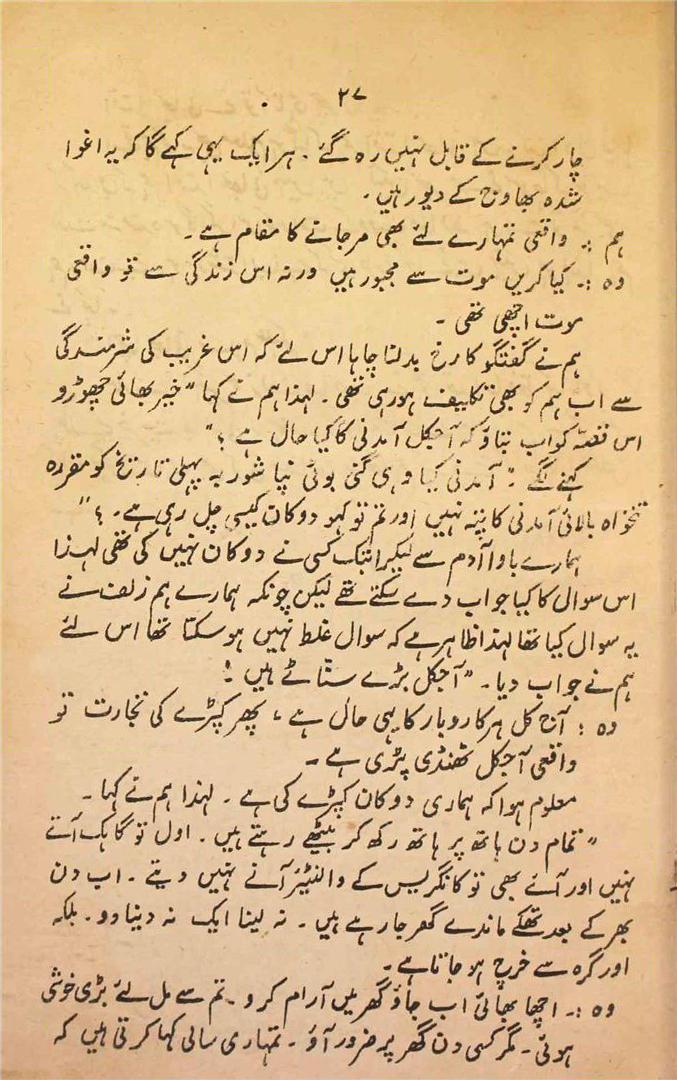 ۲۷
چار کرنے کے قابل نہیں رہ گئے ۔ ہر ایک یہی کہے گا کہ یہ اغوا
شدہ بھاوج کے دیور ہیں ۔
ہم :۔ واقعی تمہارے لئے بھی مرجانے کا مقام ہے ۔
وہ :۔ کیا کریں موت سے مجبور ہیں ورنہ اس زندگی سے تو واقعی
موت اچھی تھی ۔
ہم نے گفتگو کا رخ بدلنا چاہا اس لئے کہ اس غریب کی شرمندگی
سے اب ہم کو بھی تکلیف ہو رہی تھی ۔ لہذا ہم نے کہا " خیر بھائی چھوڑو
اس قصّہ کو اب بتاؤ کہ آجکل آمدنی کا کیا حال ہے ؟ "
کہنے لگے ۔ " آمدنی کیا وہی گنی بوٹی نپا شوربہ پہلی تاریخ کو مقررہ
تنخواہ بالائی آمدنی کا پتہ نہیں اور تم تو کہو دوکان کیسی چل رہی ہے ۔ ؟ "
ہمارے باوا آدم سے لیکر ابتک کسی نے دوکان نہیں کی تھی لہذا
اس سوال کا کیا جواب دے سکتے تھے لیکن چونکہ ہمارے ہم زلف نے
یہ سوال کیا تھا لہذا ظاہر ہے کہ سوال غلط نہیں ہو سکتا تھا اس لئے
ہم نے جواب دیا ۔ " آجکل بڑے سنّاٹے ہیں !
وہ : آج کل ہر کاروبار کا یہی حال ہے ، پھر کپڑے کی تجارت تو
واقعی آجکل ٹھنڈی پڑی ہے ۔
معلوم ہوا کہ ہماری دوکان کپڑے کی ہے ۔ لہذا ہم نے کہا ۔
" تمام دن ہاتھ پر ہاتھ رکھ کر بیٹھے رہتے ہیں ۔ اول تو گاہک آتے
نہیں اور آئے بھی تو کانگریس کے والنٹیئر آنے نہیں دیتے ۔ اب دن
بھر کے بعد تھکے ماندے گھر جا رہے ہیں ۔ نہ لینا ایک نہ دینا دو ۔ بلکہ
اور گرہ سے خرچ ہو جاتا ہے ۔
وہ :۔ اچھا بھائی اب جاؤ گھر میں آرام کرو ۔ تم سے مل لئے بڑی خوشی
ہوئی ۔ مگر کسی دن گھر پر ضرور آؤ ۔ تمہاری سالی کہا کرتی ہیں کہ